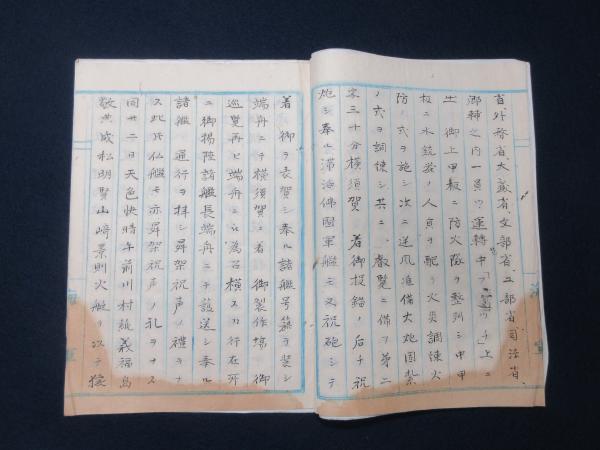 省、外務省、大蔵省、文部省、工部省、司法省、
御棟之内一員ツヽ運轉中
上 御上甲板ニ防火隊ヲ整列シ中甲
板ニ水銃器ノ人員ヲ配リ火災調練火
防ノ式ヲ施シ次ニ送風准備大炮固紮
ノ式ヲ調練シ共ニ 叡覧ニ備フ第二
字三十分横須賀 着御投錨ノ后チ祝
炮シ奉ル滞泊佛國軍艦モ又祝砲シテ
着 御ヲ衣賀シ奉ル諸艦号籏ヲ装シ
端舟ニテ横須賀ニ着 御製作場 御
巡覧再ヒ端舟ニ 為召横スカ行在所
ニ御揚陸諸艦長端舟ニテ護送シ奉ル
諸艦 通行ヲ拝シ舜架祝声ノ禮ヲナ
ス此片仏艦モ亦舜架祝声ノ礼ヲナス
同廿二日天色快晴午前川村純義福島
敬典成松明賢山崎景則火艇ヲ以テ猿